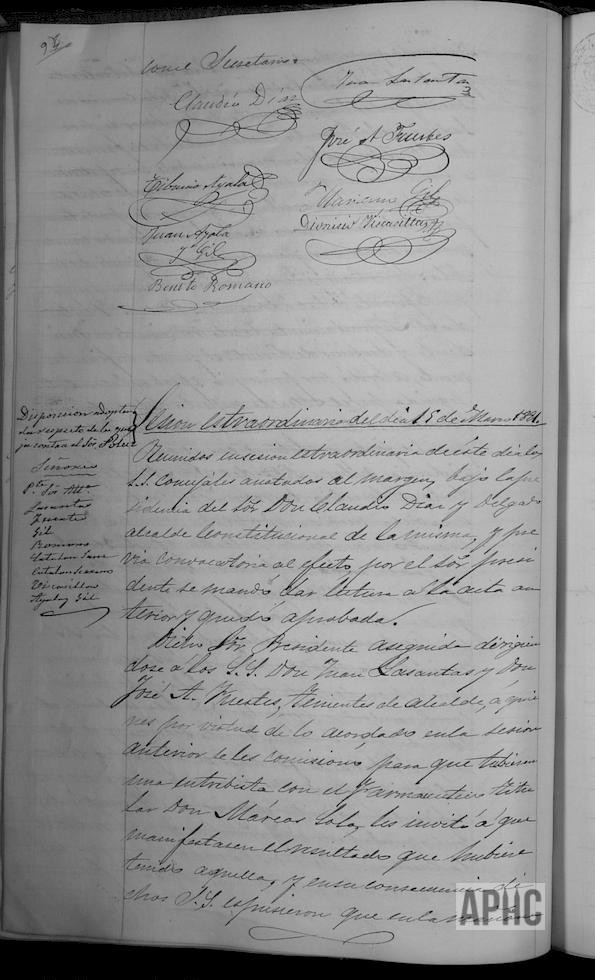 con el Secretario.
Claudio Díaz
Juan Lasantas
José A. Fuertes
Tiburcio Ayala
Mariano Gil
Juan Ayala
y Gil
Dionisio Vicarillas
Benito Romano
Disposicion adopta
da respecto de las que
jas contra el Sor.
Señores
Pte. Sor. Alle.
Lasantas
Fuertes
Gil
Romano
Catalan
Catalan
Vicarillas
Ayala y Gil
Sesion estraordinaria del dia 15 de Marzo 1881.
Reunidos en sesion estraordinaria de éste dia los
S.S. Concejales anotados al margen, bajo la pre
sidencia del Sor Don Claudio Diaz y Delgado
alcalde Constitucional de la misma, y pre
via convocatoria al efecto, por el Sor presi
dente se mandó dar lectura a la acta an
terior y quedó aprobada.
Dicho Sor Presidente aseguida dirigien
dose a los S.S. Don Juan Lasantas y Don
José A. Fuertes, tenientes de alcalde, a quie
nes por virtud de lo acordado en la sesion
anterior se les comisionó para que tubieran
una entrebista con el Farmaceutico titu
lar Don Márcos Sola, les invitó á que
manifestasen el resultado que hubiere
tenido aquella, y en su consecuencia di
chos S.S. espusieron que en la mañana
APHC